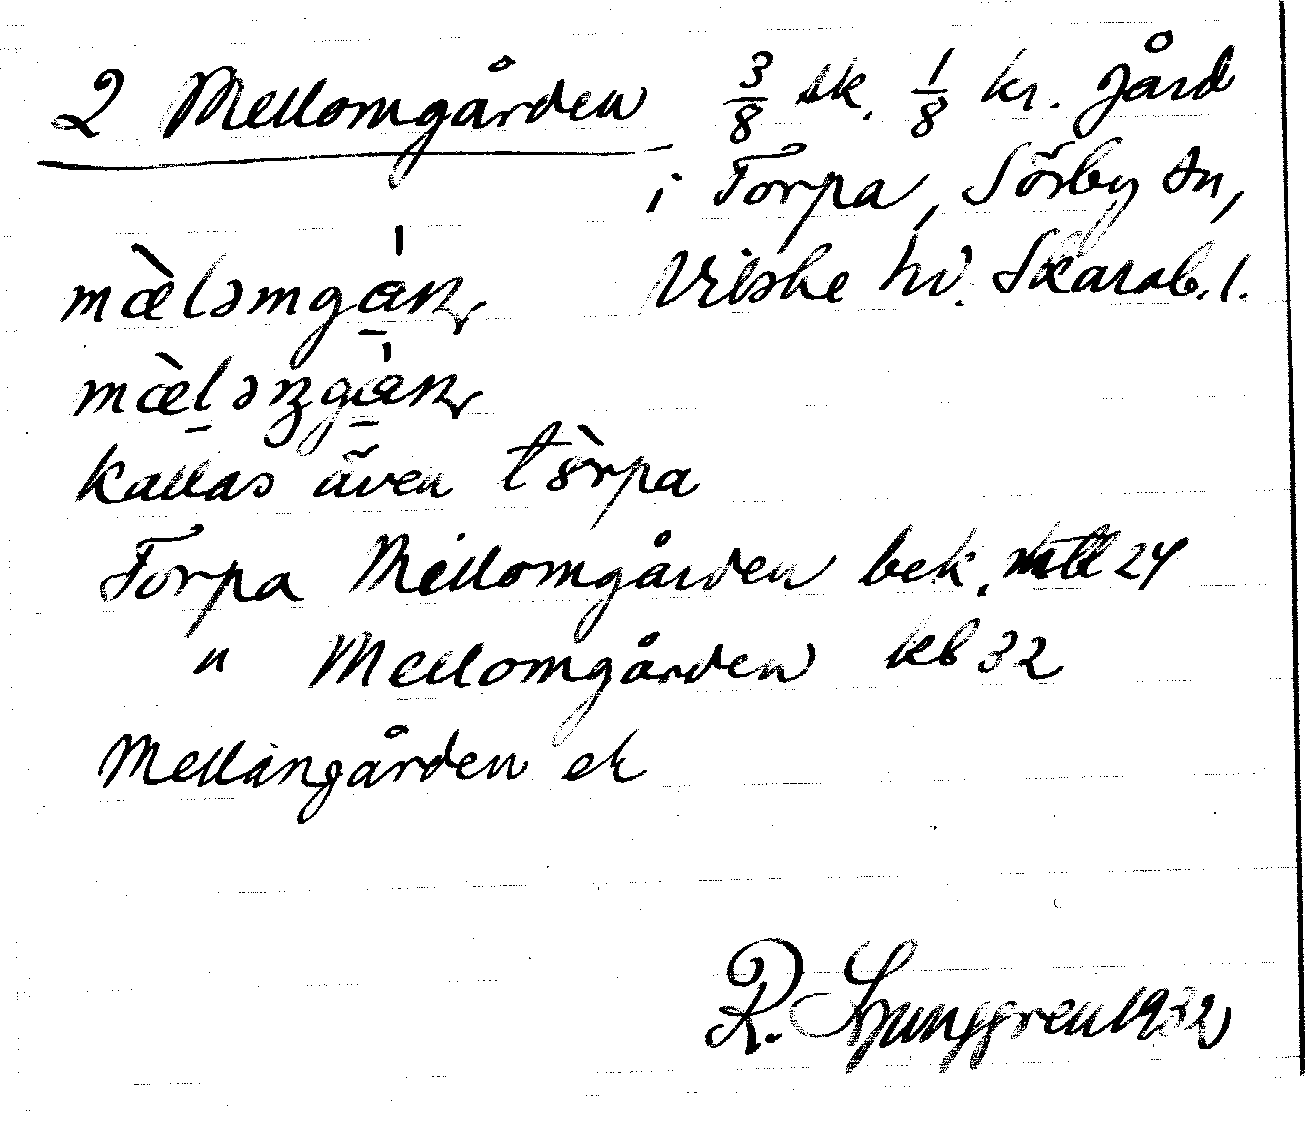 2 Mellomgården 3/8 sk. 1/8 kr. gård
i Torpa, Sörby sn,
Vilske hd. Skarab. l.
mæ̀ləmgá̱ɳ
mæ̀ləŋgá̱ɳ
kallas även tòrpa
Torpa Mellomgården bek. mtl 24
" Mellomgården kb 32
Mellangården ek
R. Ljunggren 1932